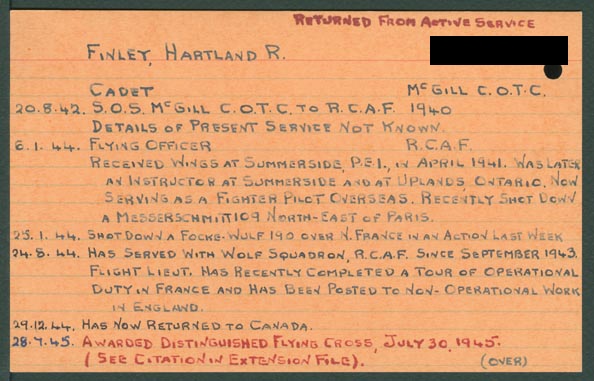 RETURNED FROM ACTIVE SERVICE
FINLEY, HARTLAND R.
CADET McGILL C.O.T.C.
20.8.42. S.O.S. McGILL C.O.T.C. TO R.C.A.F. 1940
DETAILS OF PRESENT SERVICE NOT KNOWN.
6.1.44. FLYING OFFICER R.C.A.F.
RECEIVED WINGS AT SUMMERSIDE, P.E.I., IN APRIL 1941. WAS LATER
AN INSTRUCTOR AT SUMMERSIDE AND AT UPLANDS, ONTARIO. NOW
SERVING AS A FIGHTER PILOT OVERSEAS. RECENTLY SHOT DOWN
A MESSERSCHMITT109 NORTH-EAST OF PARIS.
25.1.44. SHOT DOWN A FOCKE-WULF 190 OVER N. FRANCE IN AN ACTION LAST WEEK
24.8.44. HAS SERVED WITH WOLF SQUADRON, R.C.A.F. SINCE SEPTEMBER 1943.
FLIGHT LIEUT. HAS RECENTLY COMPLETED A TOUR OF OPERATIONAL
DUTY IN FRANCE AND HAS BEEN POSTED TO NON-OPERATIONAL WORK
IN ENGLAND.
29.12.44. HAS NOW RETURNED TO CANADA.
28.7.45. AWARDED DISTINGUISHED FLYING CROSS, JULY 30, 1945.
(SEE CITATION IN EXTENSION FILE). (OVER)